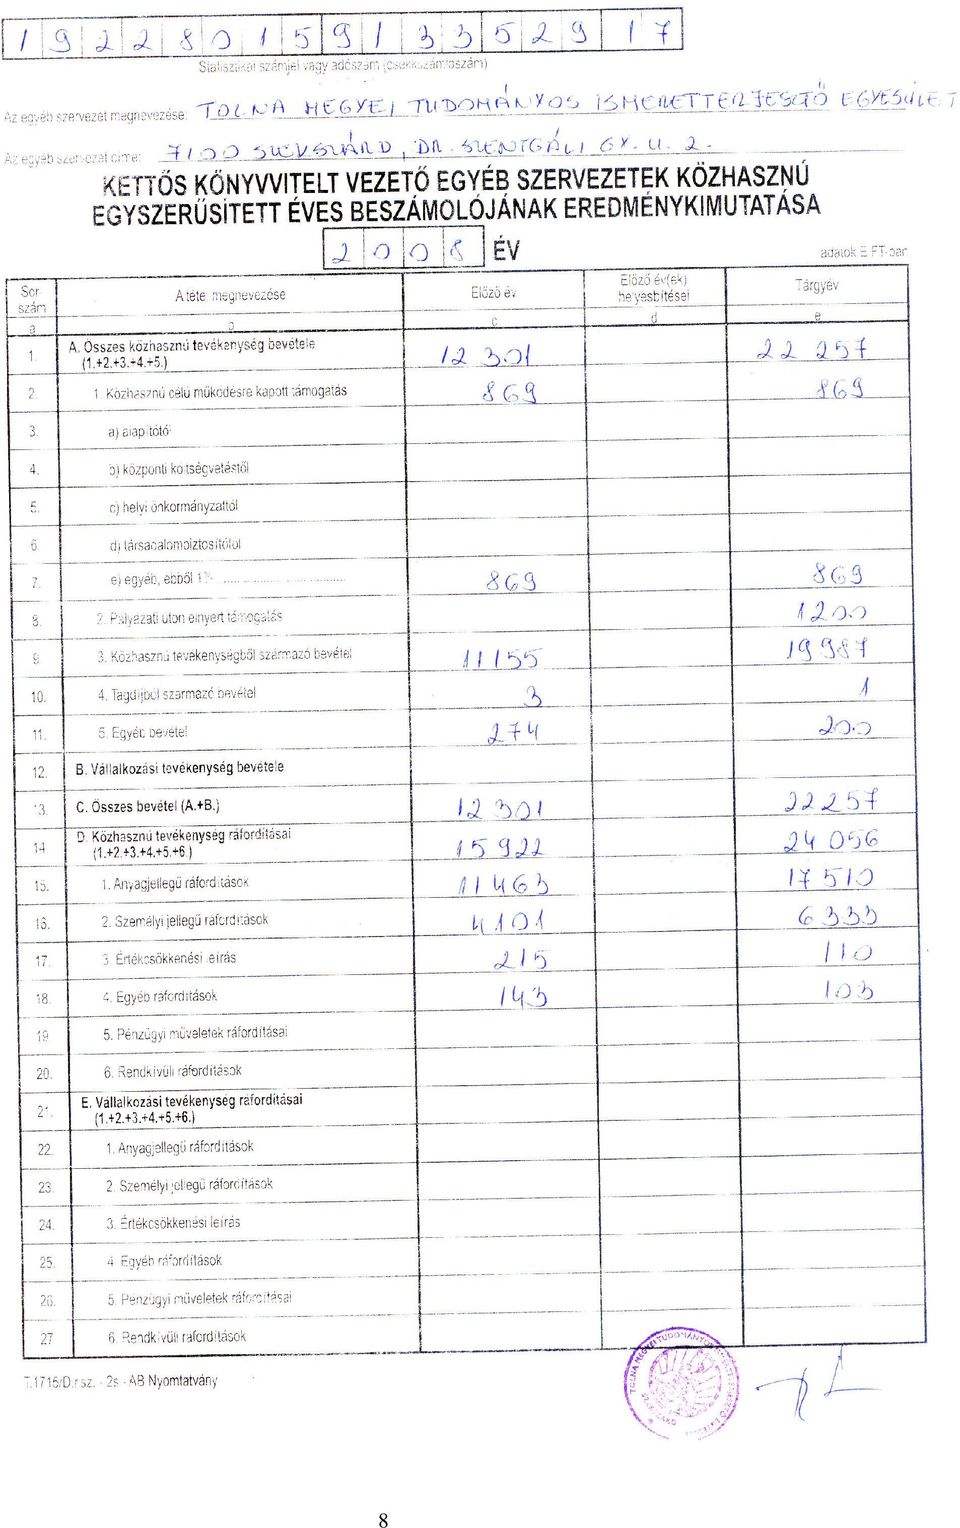 1 9 2 2 8 0 1 5 9 1 3 3 5 2 9 1 7
Statisztikai számjel vagy adószám (csekkszámlaszám)
Az egyéb szervezet megnevezése: TOLNA MEGYEI TUDOMÁNYOS ISMERETTERJESZTŐ EGYESÜLET
Az egyéb szervezet címe: 7100 SZEKSZÁRD, DR. SZENTGÁLI GY. U. 2.
KETTŐS KÖNYVVITELT VEZETŐ EGYÉB SZERVEZETEK KÖZHASZNÚ
EGYSZERŰSÍTETT ÉVES BESZÁMOLÓJÁNAK EREDMÉNYKIMUTATÁSA
2 0 0 8 ÉV adatok E FT-ban
Sor szám A tétel megnevezése Előző év Előző év(ek) helyesbítései Tárgyév
a b c d e
1. A. Összes közhasznú tevékenység bevétele (1.+2.+3.+4.+5.) 12 301 22 257
2. 1. Közhasznú célú működésre kapott támogatás 869 869
3. a) alapítótól
4. b) központi költségvetéstől
5. c) helyi önkormányzattól
6. d) társadalombiztosítótól
7. e) egyéb, ebből 1% .................... 869 869
8. 2. Pályázati úton elnyert támogatás 1200
9. 3. Közhasznú tevékenységből származó bevétel 11155 19987
10. 4. Tagdíjból származó bevétel 3 1
11. 5. Egyéb bevétel 274 200
12. B. Vállalkozási tevékenység bevétele
13. C. Összes bevétel (A.+B.) 12 301 22257
14. D. Közhasznú tevékenység ráfordításai (1.+2.+3.+4.+5.+6.) 15 922 24 056
15. 1. Anyagjellegű ráfordítások 11463 17 510
16. 2. Személyi jellegű ráfordítások 4101 6333
17. 3. Értékcsökkenési leírás 215 110
18. 4. Egyéb ráfordítások 143 103
19. 5. Pénzügyi műveletek ráfordításai
20. 6. Rendkívüli ráfordítások
21. E. Vállalkozási tevékenység ráfordításai (1.+2.+3.+4.+5.+6.)
22. 1. Anyagjellegű ráfordítások
23. 2. Személyi jellegű ráfordítások
24. 3. Értékcsökkenési leírás
25. 4. Egyéb ráfordítások
26. 5. Pénzügyi műveletek ráfordításai
27. 6. Rendkívüli ráfordítások
T.1715/D.r.sz. - 2s - AB Nyomtatvány
8